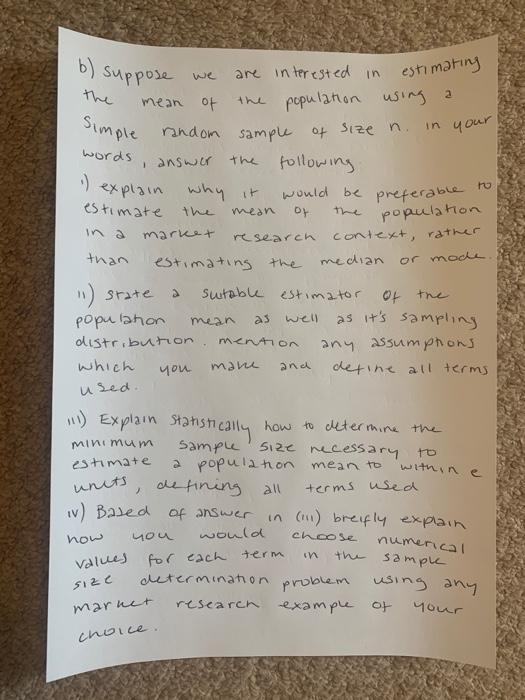 b) Suppose we are interested in estimating
the mean of the population using a
Simple random sample of size n. in your
words, answer the following.
i) explain why it would be preferable to
estimate the mean of the population
in a market research context, rather
than estimating the median or mode.
ii) state a suitable estimator of the
population mean as well as it's sampling
distribution. mention any assumptions
which you make and define all terms
used.
iii) Explain statistically how to determine the
minimum sample size necessary to
estimate a population mean to within e
units, defining all terms used
iv) Based of answer in (iii) breifly explain
how you would choose numerical
values for each term in the sample
size determination problem using any
market research example of your
choice.